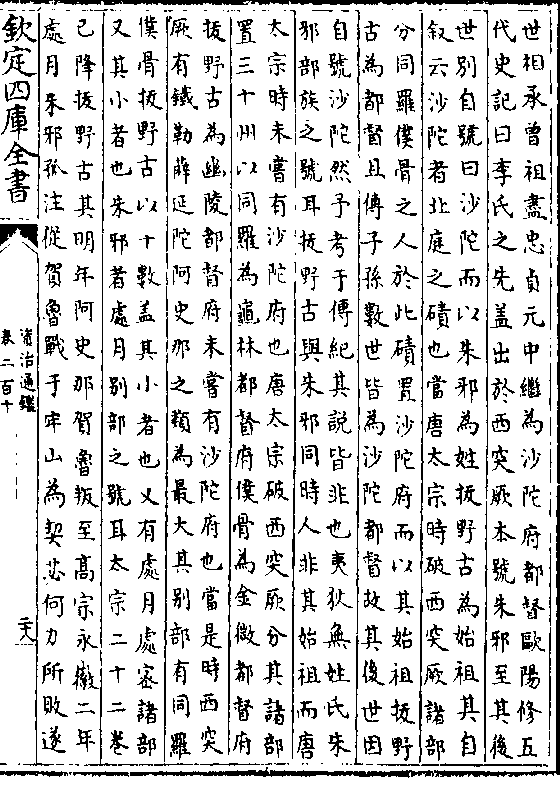 世相承曽祖盡忠貞元中繼為沙陀府都督歐陽修五
代史記曰李氏之先盖出於西突厥本號朱邪至其後
世別自號曰沙陀而以朱邪為姓拔野古為始祖其自
叙云沙陀者北庭之磧也當唐太宗時破西突厥諸部
分同羅僕骨之人於此磧置沙陀府而以其始祖拔野
古為都督且傳子孫數世皆為沙陀都督故其後世因
自號沙陀然予考于傳紀其說皆非也夷狄無姓氏朱
邪部族之號耳拔野古與朱邪同時人非其始祖而唐
太宗時未嘗有沙陀府也唐太宗破西突厥分其諸部
置三十州以同羅為龜林都督府僕骨為金微都督府
拔野古為幽陵都督府未嘗有沙陀府也當是時西突
厥有鐵勒薛延陀阿史那之類為最大其別部有同羅
僕骨拔野古以十數盖其小者也又有處月處宻諸部
又其小者也朱邪者處月別部之號耳太宗二十二巻
已降拔野古其明年阿史那賀魯叛至髙宗永徽二年
處月朱邪孤注從賀魯戰于牢山為契苾何力所敗遂
欽定四庫全書
資治通鑑
巻二百十
二十八